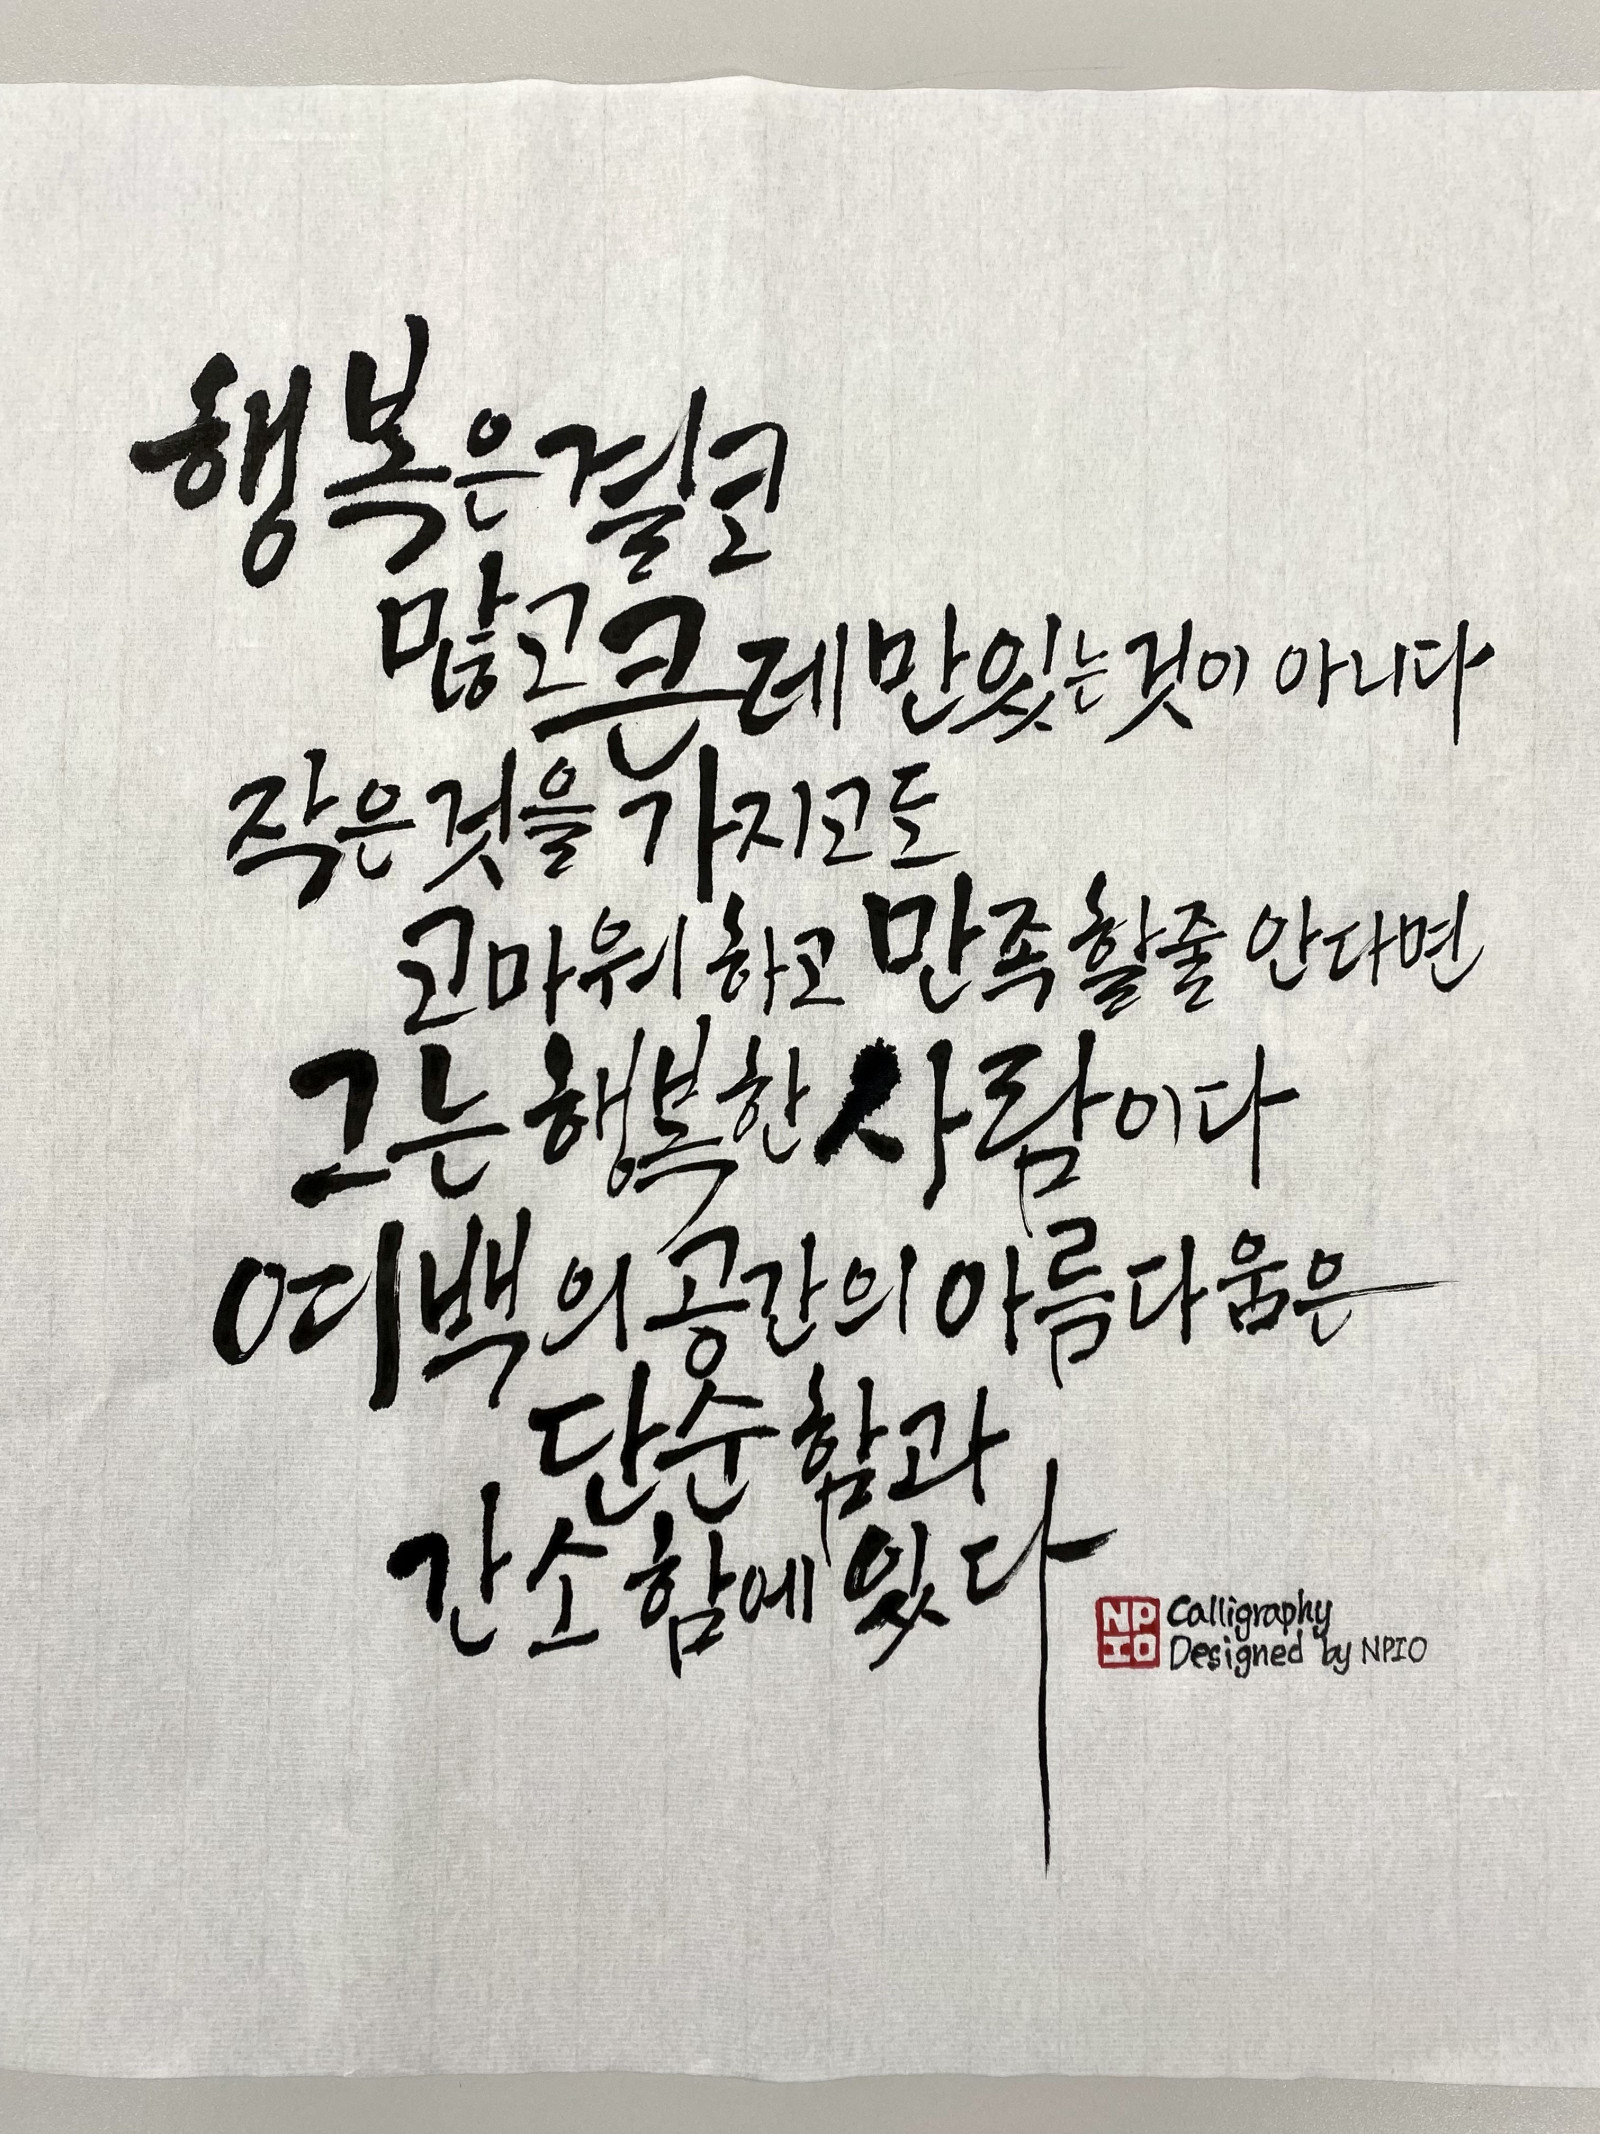 행복은 결코
많고 큰데만 있는 것이 아니다
작은 것을 가지고도
고마워 하고 만족할 줄 안다면
그는 행복한 사람이다
여백의 공간의 아름다움은
단순함과
간소함에 있다
NP
IO
Calligraphy
Designed by NPIO